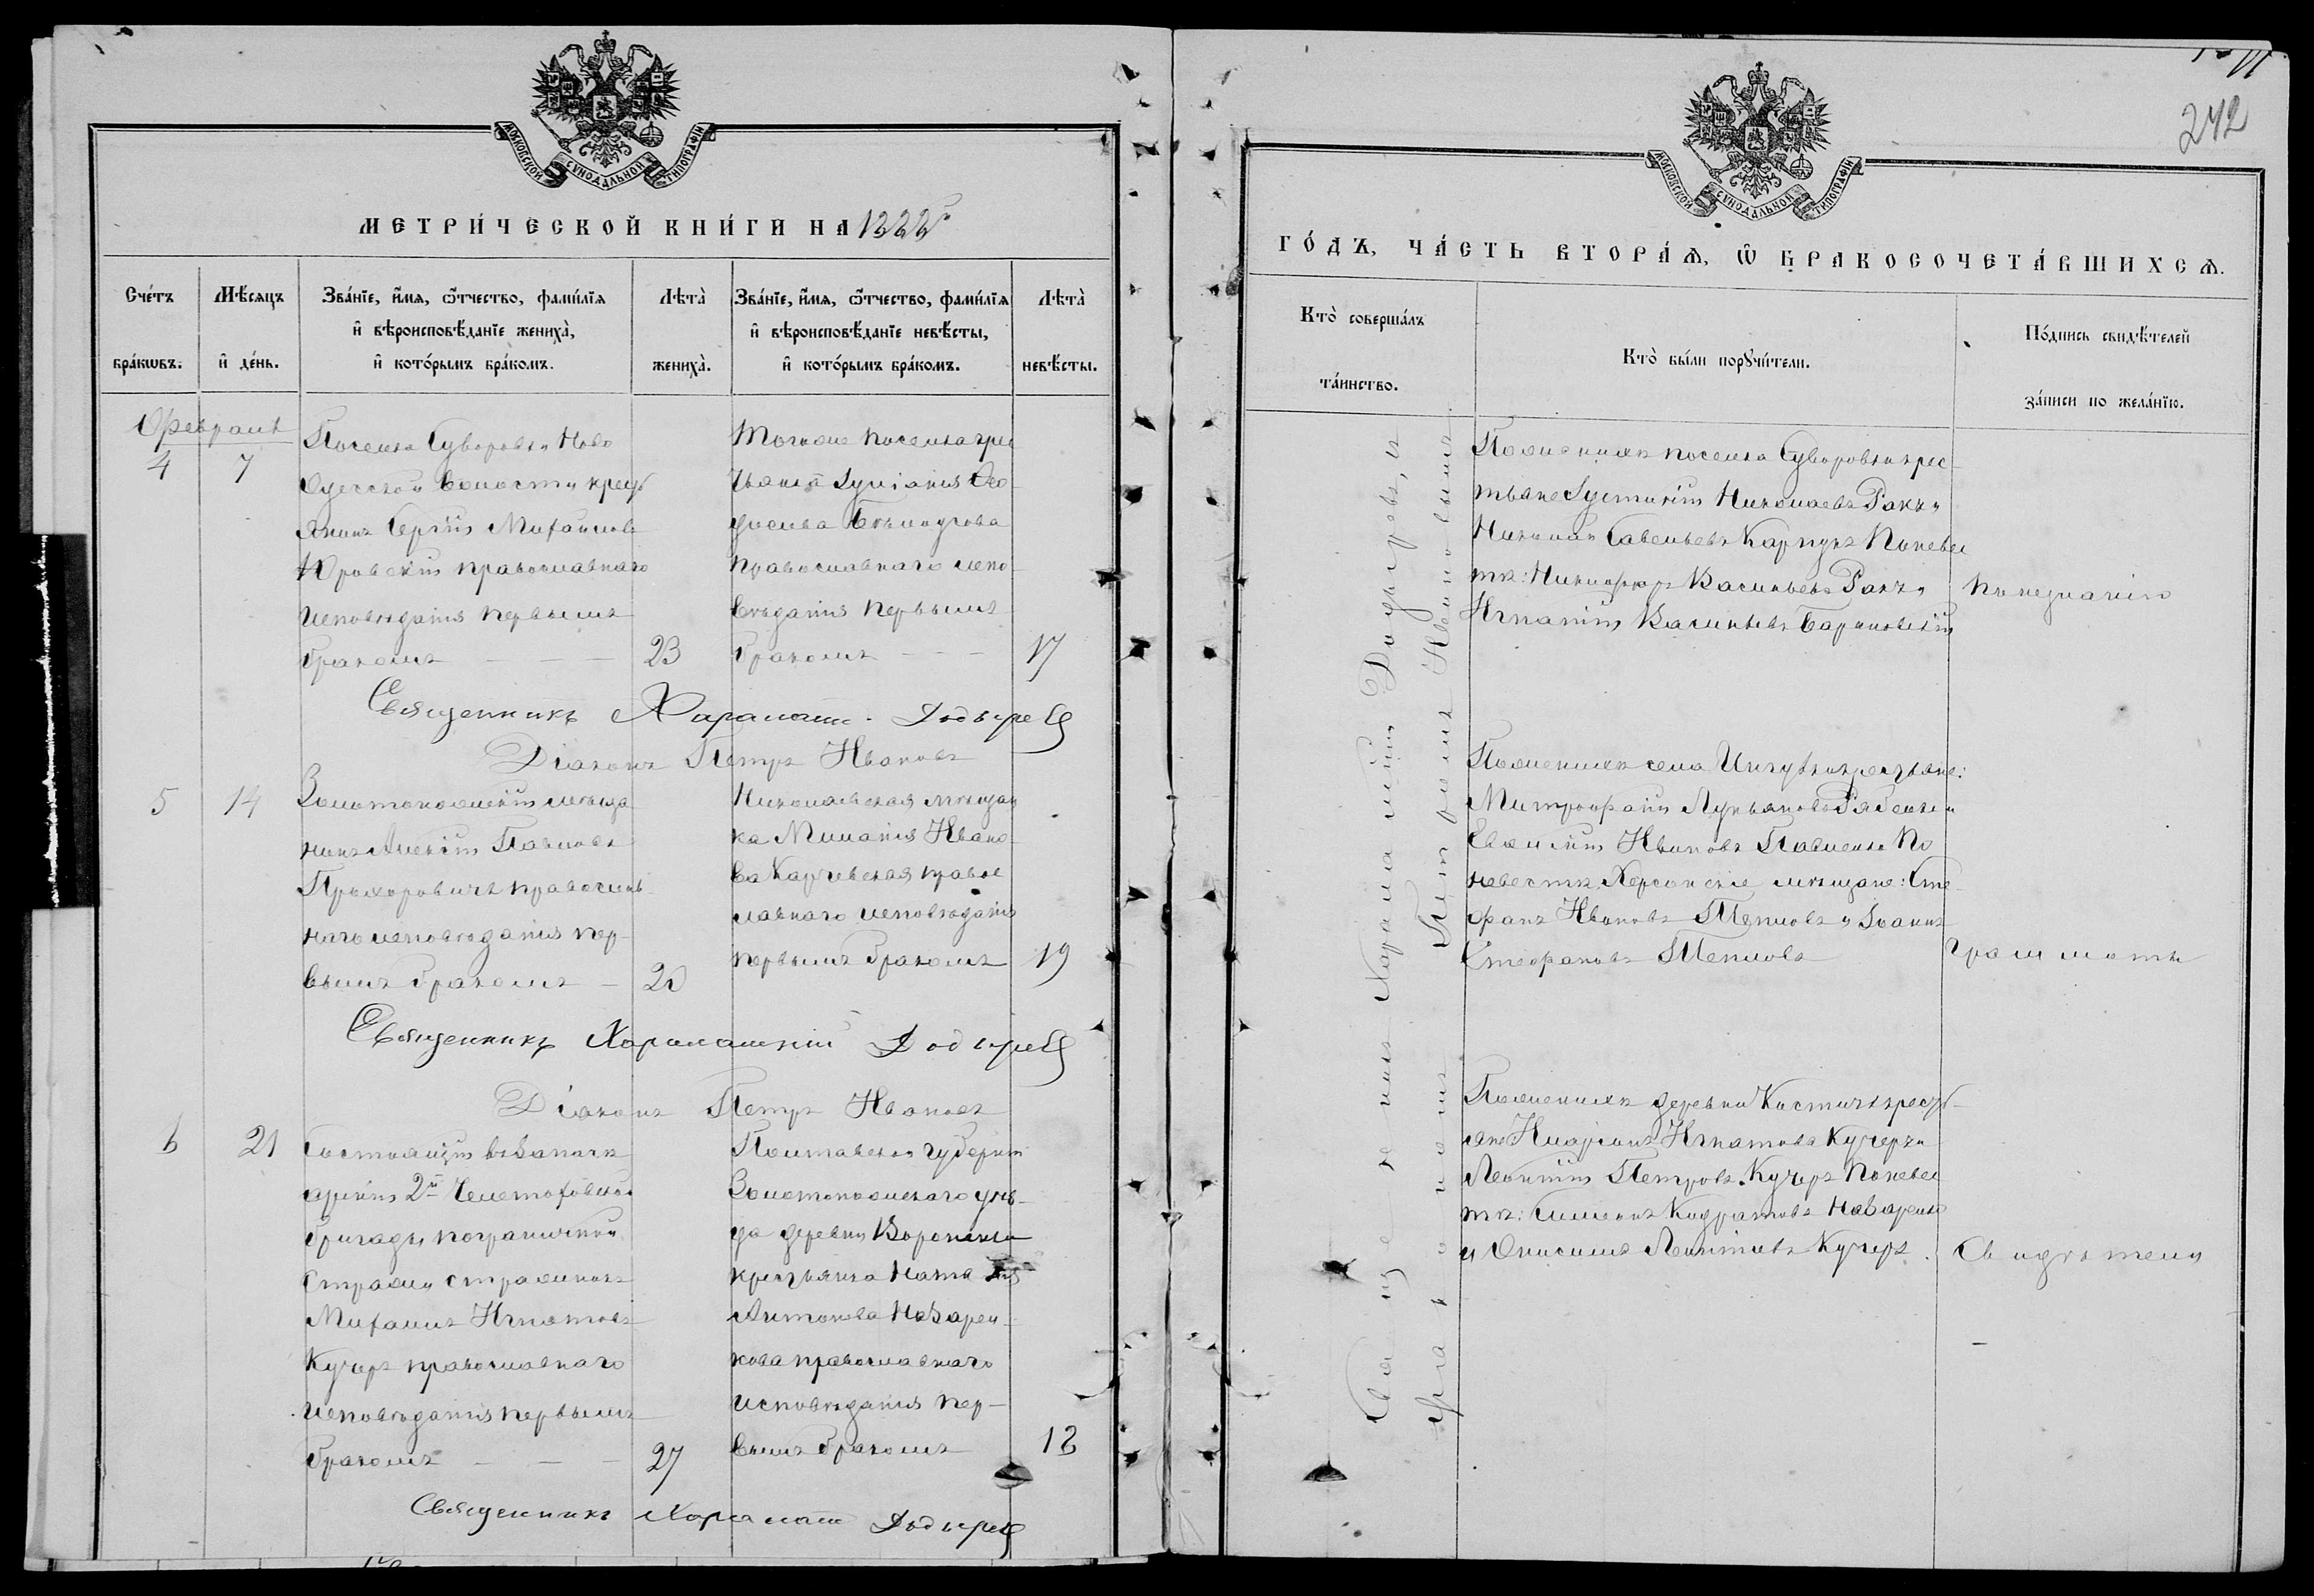 МОСКОВСКОЙ СѴНОДАЛЬНОЙ ТИПОГРАФІИ
МЕТРИ́ЧЕСКОЙ КНИ́ГИ НА 1888
Сче́тъ бра́кѡвъ.
Мѣ́сяцъ и҆ де́нь.
Зва́нїе, и҆́мѧ, ѻ҆́тчество, фами́лїѧ
и҆ вѣроисповѣ́данїе жениха̀,
и҆ кото́рымъ бра́комъ.
Лѣта̀ жениха̀.
Зва́нїе, и҆́мѧ, ѻ҆́тчество, фами́лїѧ
и҆ вѣроисповѣ́данїе невѣ́сты,
и҆ кото́рымъ бра́комъ.
Лѣта̀ невѣ́сты.
Февраль
4
7
Поселка Суворовки Ново
Одесской волости крест
янинъ Сергій Михайловъ
Юровскій православнаго
исповѣданія первымъ
бракомъ
23
Тогоже поселка крес
тьянка
православнаго испо
вѣданія первымъ
бракомъ
17
Священникъ Харалам.
Діаконъ Петръ Ивановъ
5
14
Золотоношскій мѣща
нинъ Алексій Павловъ
Прохоровичъ православ
наго исповѣданія пер
вымъ бракомъ
Николаевская мѣщан
ка Миланія Ивано
ва Карчевская право
славнаго исповѣданія
первымъ бракомъ
19
Священникъ Харалампій
Діаконъ Петръ Ивановъ
6
21
Состоящій въ Запасѣ
арміи 2й Ченстоховской
бригады пограничной
Стражи стражникъ
Михаилъ Игнатовъ
Кучеръ православнаго
исповѣданія первымъ
бракомъ
27
Полтавской губерніи
Золотоношскаго уѣз
да деревни Воронинки
крестьянка Наталія
Антонова Назарен
кова православнаго
исповѣданія пер
вымъ бракомъ
18
Священникъ Харалам
242
МОСКОВСКОЙ СѴНОДАЛЬНОЙ ТИПОГРАФІИ
ГО́ДЪ, ЧА́СТЬ ВТОРА́Ѧ, Ѡ҆ БРАКОСОЧЕТА́ВШИХСѦ.
Кто̀ соверша́лъ та́инство.
Кто̀ бы́ли порꙋчи́тели.
По́дпись свидѣ́телей за́писи по жела́нїю.
Священникъ Харалампій
Діакономъ Петромъ Ивановымъ
По женихѣ поселка Суворовки крес
тьяне Іустинъ Николаевъ Ракъ и
Николай Савельевъ Карпукъ По невес
тѣ: Никифоръ Васильевъ Ракъ и
Игнатій Васильевъ Барановскій
По женихѣ села Ингулки крестьяне:
Митрофанъ Лукьяновъ Рябенко и
Евфимій Ивановъ Павленко По
невестѣ Херсонскіе мѣщане: Сте
фанъ Ивановъ Тепловъ и Іоаннъ
Стефановъ Теплов
грамоты
По женихѣ деревни Костичъ крест
яне Иларіонъ Игнатовъ Кучеръ и
Леонтій Петровъ Кучеръ По невес
тѣ: Симеонъ Кодратовъ Назаренко
и Онисимъ Леонтіевъ Кучеръ.
Свидѣтели